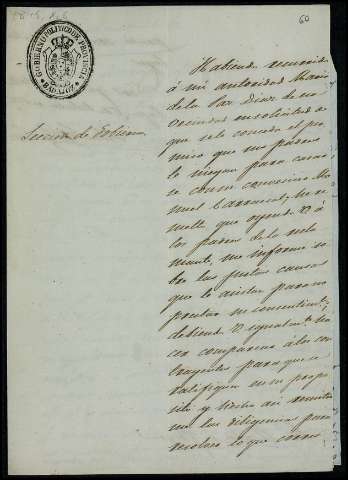 60
GOBIERNO POLITICO DE PROVINCIA
BADAJOZ
Seccion de Gobierno
Habiendo recurrido
á mi autoridad Maria
de la Paz Diaz de esa
vecindad en solicitud de
que se le conceda el per
miso que sus padres
le niegan para casar
se con su convecino Ma
nuel Carrascal, he re
suelto que oyendo V. á
los padres de la recla
mante, me informe so
bre las justas causas
que le asistan para no
prestar su consentimto;
debiendo V. igualmte ha
cer comparecer á los con
trayentes para que se
ratifiquen en su propo
sito y hecho así remitir
me las diligencias para
resolver lo que corres